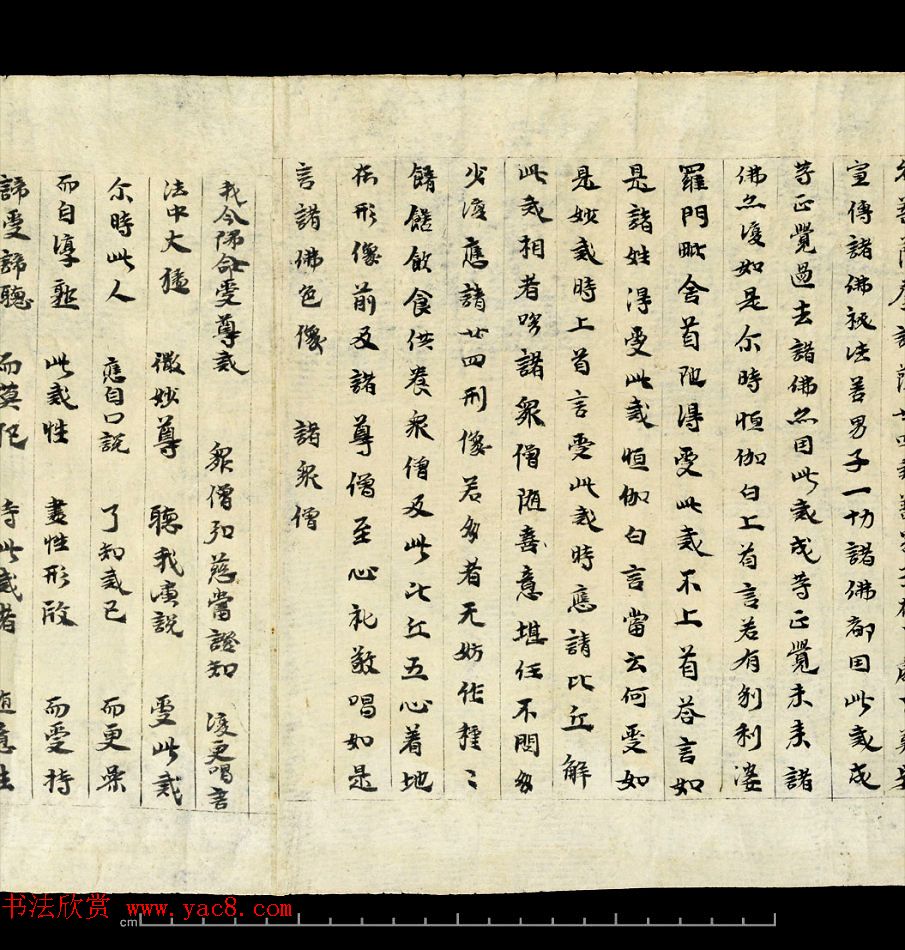 宣傳諸佛秘法善男子一切諸佛都因此戒成
等正覺過去諸佛亦因此戒成等正覺未来諸
佛亦復如是尒時恒伽白上首言若有刹利婆
羅門毗舍首陁得受此戒不上首荅言如
是諸姓得受此戒恒伽白言當云何受如
是妙戒時上首言受此戒時應請比丘解
此戒相者唤諸衆僧随喜意堪任不問多
少復應請廿四形像若多者无妨作種〻
餚饍飲食供養衆僧及此比丘五心着地
在形像前及諸尊僧至心礼敬唱如是
言諸佛色像 諸衆僧
我今歸命受尊戒 衆僧弘慈當證知 復更唱言
法中大猛 微妙尊 聽我演説 受此戒
尒時此人 應自口説 了知戒已 而更
而自 此戒性 盡性形 而受持
諦受諦聽 而莫犯 持此戒者 随意生
书法欣赏 www.yac8.com
cm